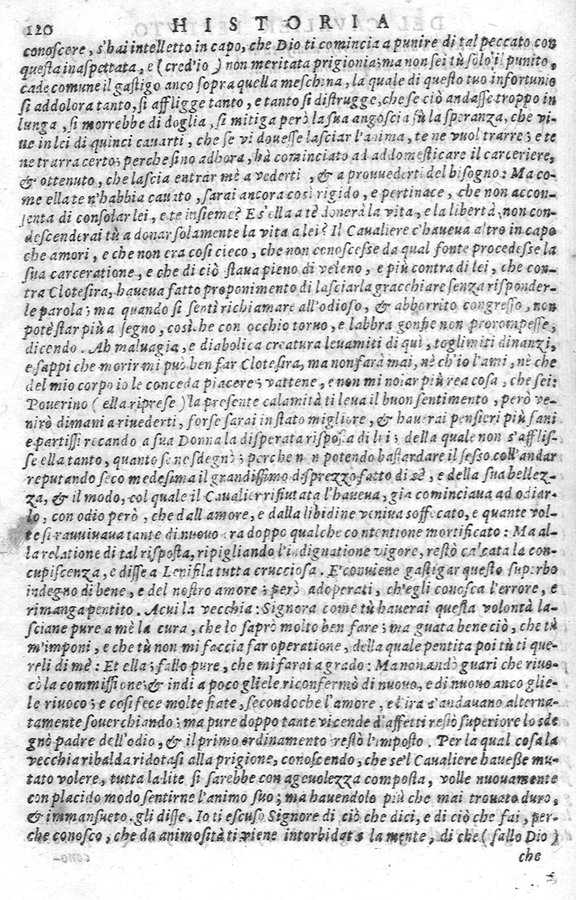 120 HISTORIA
conoscere, s'hai intelletto in capo, che Dio ti comincia a punire di tal peccato con
questa inaspettata, e (cred'io) non meritata prigionia; ma non sei tù solo il punito,
cade comune il gastigo anco sopra quella meschina, la quale di questo tuo infortunio
si addolora tanto, si affligge tanto, e tanto si distrugge, che se ciò andasse troppo in
lunga, si morrebbe di doglia, si mitiga però la sua angoscia sù la speranza, che vi-
ue in lei di quinci cauarti, che se vi douesse lasciar l'anima, te ne vuol trarre; e te
ne trarra certo; perche sino adhora, hà cominciato ad addomesticare il carceriere,
& ottenuto, che lascia entrar me a vederti, & a prouuederti del bisogno: Ma co-
me ella te n'habbia cauato, sarai ancora così rigido, e pertinace, che non accon-
senta di consolar lei, e te insieme? E s'ella a tè donerà la vita, e la libertà, non con-
descenderai tù a donar solamente la vita a lei? Il Caualiere c'haueua altro in capo
che amori, e che non era cosi cieco, che non conoscesse da qual fonte procedesse la
sua carceratione, e che di ciò staua pieno di veleno, e più contra di lei, che con-
tra Clotesira, haueua fatto proponimento di lasciarla gracchiare senza risponder-
le parola; ma quando si sentì richiamare all'odioso, & abborrito congresso, non
potè star più a segno, cosi che con occhio toruo, e labbra gonfie non prorompesse,
dicendo. Ah maluagia, e diabolica creatura leuamiti di quì, toglimiti dinanzi,
e sappi che morir mi può ben far Clotesira, ma non farà mai, nè ch'io l'ami, nè che
del mio corpo io le conceda piacere; vattene, e non mi noiar più rea cosa, che sei:
Pouerino (ella riprese) la presente calamità ti leua il buon sentimento, però ve-
nirò dimani a riuederti, forse sarai in stato migliore, & hauerai pensieri più sani
e partissi recando a sua Donna la disperata risposta di lei; della quale non s'afflis-
se ella tanto, quanto se ne sdegnò; perche non potendo bastardare il sesso coll'andar
reputando seco medesima il grandissimo disprezzo fatto di sè, e della sua bellez-
za, & il modo, col quale il Caualier rifiutata l'haueua, gia cominciaua ad odiar-
lo; con odio però, che dall'amore, e dalla libidine veniua soffocato, e quante vol-
te si rauuiuaua tante di nuouo era doppo qualche contentione mortificato: Ma al-
la relatione di tal risposta, ripigliando l'indignatione vigore, restò calcata la con-
cupiscenza, e disse a Lenifila tutta crucciosa. E' conuiene gastigar questo superbo
indegno di bene, e del nostro amore; però adoperati, ch'egli conosca l'errore, e
rimanga pentito. A cui la vecchia: Signora come tù hauerai questa volontà la-
sciane pure a mè la cura, che lo saprò molto ben fare; ma guata bene ciò, che tù
m'imponi, e che tù non mi faccia far operatione, della quale pentita poi tù ti que-
reli di mè: Et ella; fallo pure, che mi farai a grado: Ma non andò guari che riuo-
cò la commissione; & indi a poco gliele riconfermò di nuouo, e di nuouo anco glie-
le riuoco; e cosi fece molte fiate, secondo che l'amore, e l'ira s'andauano alterna-
tamente souerchiando; ma pure doppo tante vicende d'affetti restò superiore lo sde
gnò padre dell'odio, & il primo ordinamento restò l'imposto. Per la qual cosa la
vecchia ribalda ridotasi alla prigione, conoscendo, che se'l Caualiere hauesse mu-
tato volere, tutta la lite si sarebbe con ageuolezza composta, volle nuouamente
con placido modo sentirne l'animo suo; ma hauendolo più che mai trouato duro,
& immansueto. gli disse. Io ti escuso Signore di ciò che dici, e di ciò che fai, per-
che conosco, che da animosità ti viene intorbidata la mente, di che (fallo Dio)
che